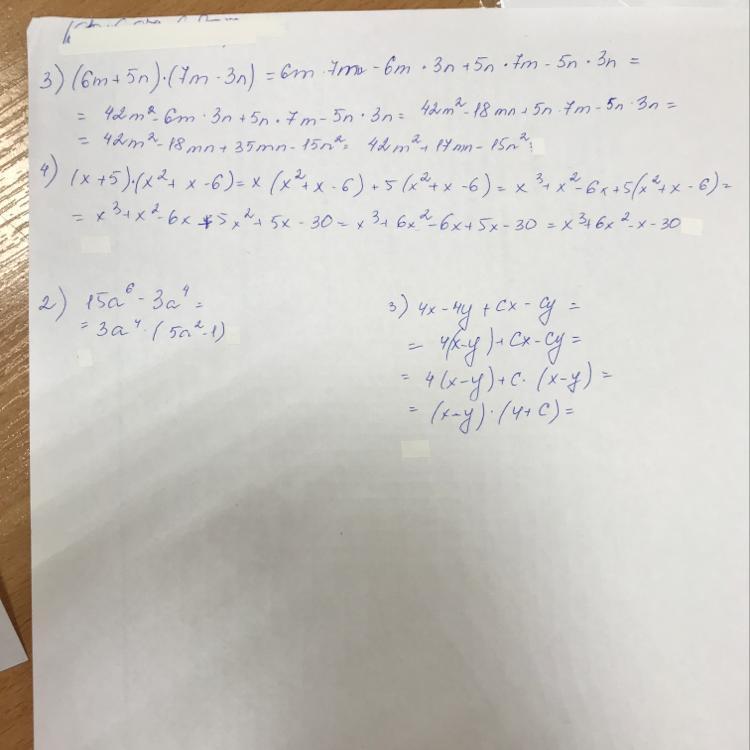 3) (6m + 5n)·(7m - 3n) = 6m · 7m - 6m · 3n + 5n · 7m - 5n · 3n =
= 42m² - 6m · 3n + 5n · 7m - 5n · 3n = 42m² - 18mn + 5n · 7m - 5n · 3n =
= 42m² - 18mn + 35mn - 15n² = 42m² + 17mn - 15n²;
4) (x + 5)·(x² + x - 6) = x (x² + x - 6) + 5 (x² + x - 6) = x³ + x² - 6x + 5(x² + x - 6) =
= x³ + x² - 6x + 5x² + 5x - 30 = x³ + 6x² - 6x + 5x - 30 = x³ + 6x² - x - 30
2) 15a⁶ - 3a⁴ =
= 3a⁴ · (5a² - 1)
3) 4x - 4y + cx - cy =
= 4(x - y) + cx - cy =
= 4(x - y) + c · (x - y) =
= (x - y) · (4 + c) =